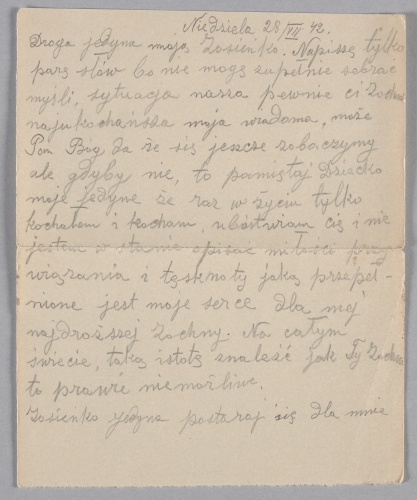 Niedziela 28/VII 42.
Droga jedyna moja Zosieńko. Napiszę tylko
parę słów bo nie mogę zupełnie zebrać
myśli, sytuacja nasza pewnie ci Zochno
najukochańsza moja wiadoma, może
Pan Bóg da że się jeszcze zobaczymy
ale gdyby nie, to pamiętaj dziecko
moje jedyne że raz w życiu tylko
kochałem i kocham, ubóstwiam cię i nie
jestem w stanie opisać miłości przy-
wiązania i tęsknoty jaką przepeł-
nione jest moje serce dla mej
najdroższej Zochny. Na całym
świecie, taką istotę znaleść jak Ty Zochno
to prawie niemożliwe.
Zosieńko jedyna postaraj się dla mnie